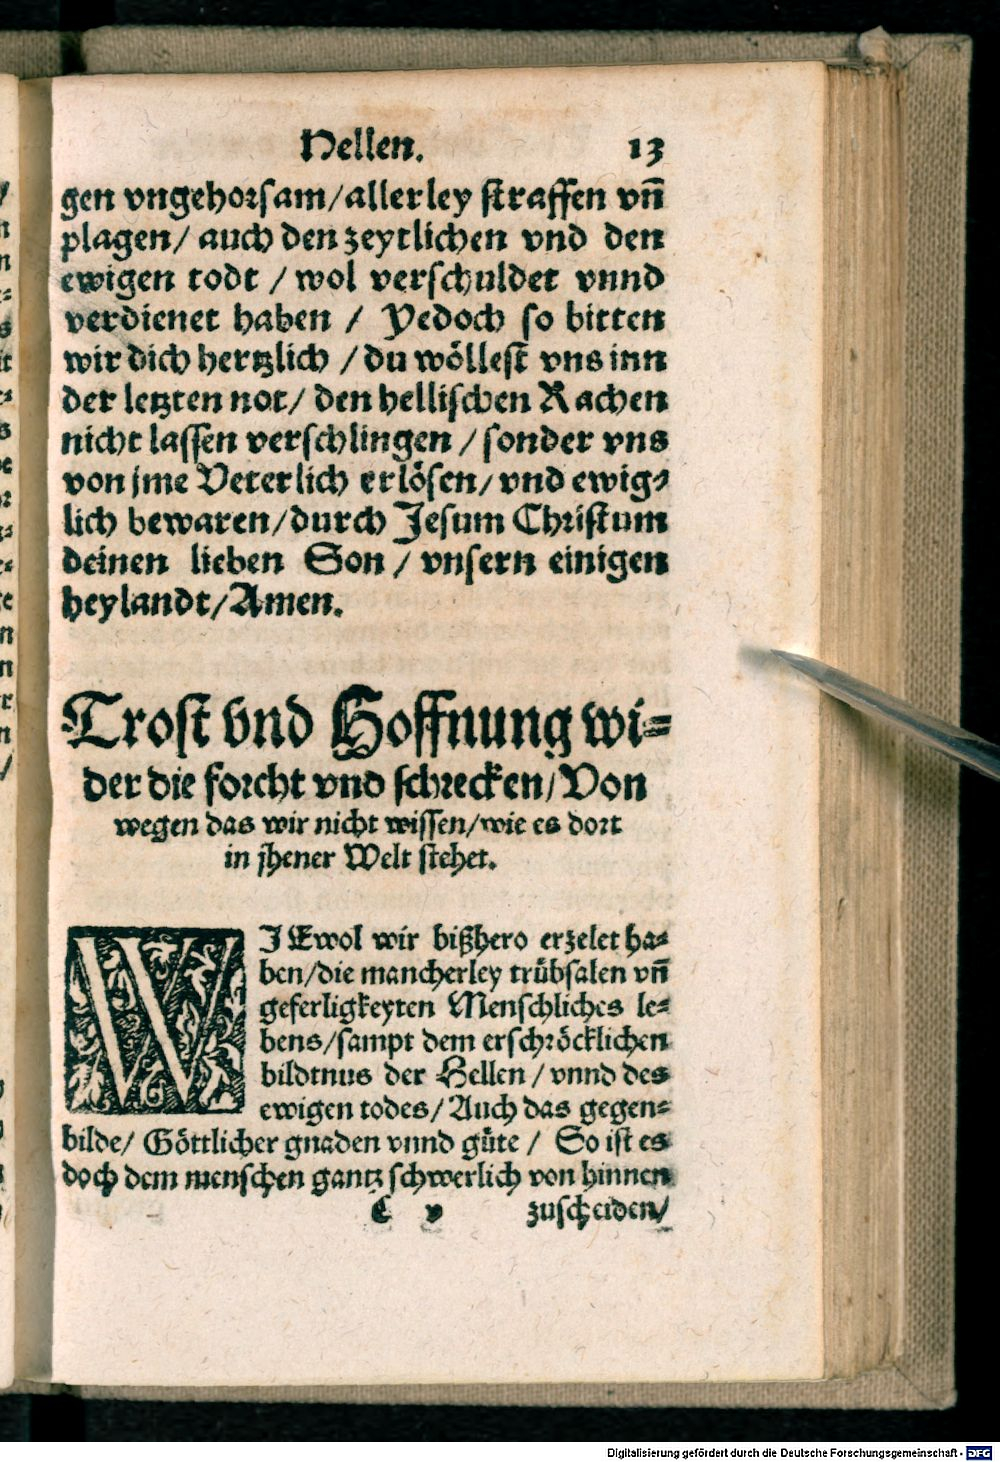 Hellen. 13
gen vngehorsam/allerley straffen vñ
plagen/ auch den zeytlichen vnd den
ewigen todt / wol verschuldet vnnd
verdienet haben / Yedoch so bitten
wir dich hertzlich / du wöllest vns inn
der letzten not/ den hellischen Rachen
nicht lassen verschlingen / sonder vns
von jme Veterlich erlösen/ vnd ewig-
lich bewaren/durch Jesum Christum
deinen lieben Son / vnsern einigen
heylandt/Amen.
Trost vnd Hoffnung wi-
der die forcht vnd schrecken/Von
wegen das wir nicht wissen/wie es dort
in jhener Welt stehet.
WIEwol wir bißhero erzelet ha-
ben/die mancherley trübsalen vñ
geferligkeyten Menschliches le-
bens/sampt dem erschröcklichen
bildtnus der Hellen / vnnd des
ewigen todes/ Auch das gegen-
bilde/ Göttlicher gnaden vnnd güte / So ist es
doch dem menschen gantz schwerlich von hinnen
C v zuscheiden/
Digitalisierung gefördert durch die Deutsche Forschungsgemeinschaft - DFG